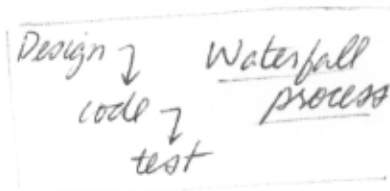 Design
code
test
Waterfall
process